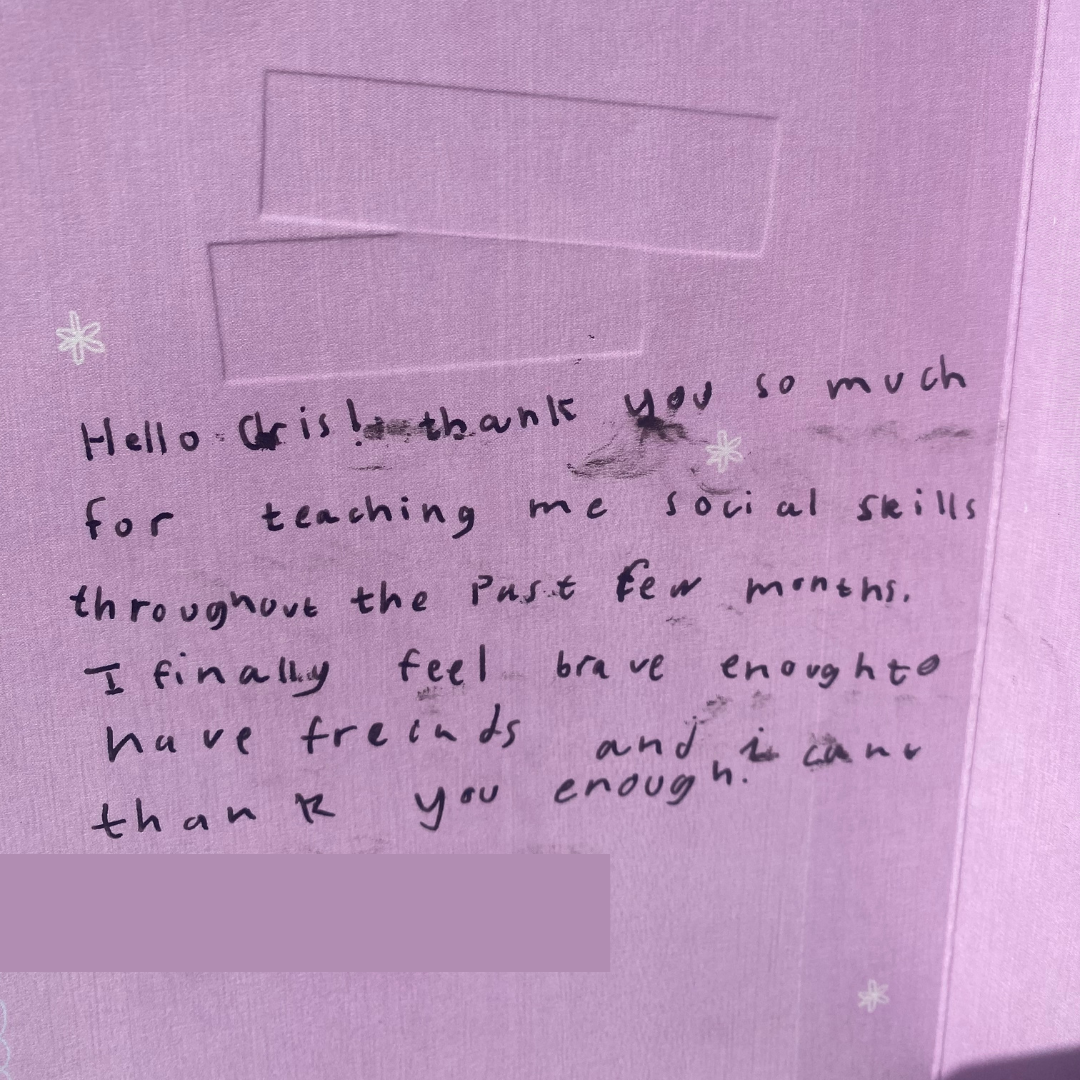 Hello Chris! thank you so much
for teaching me social skills
throughout the past few months.
I finally feel brave enough to
have freinds and i canv
thank you enough.